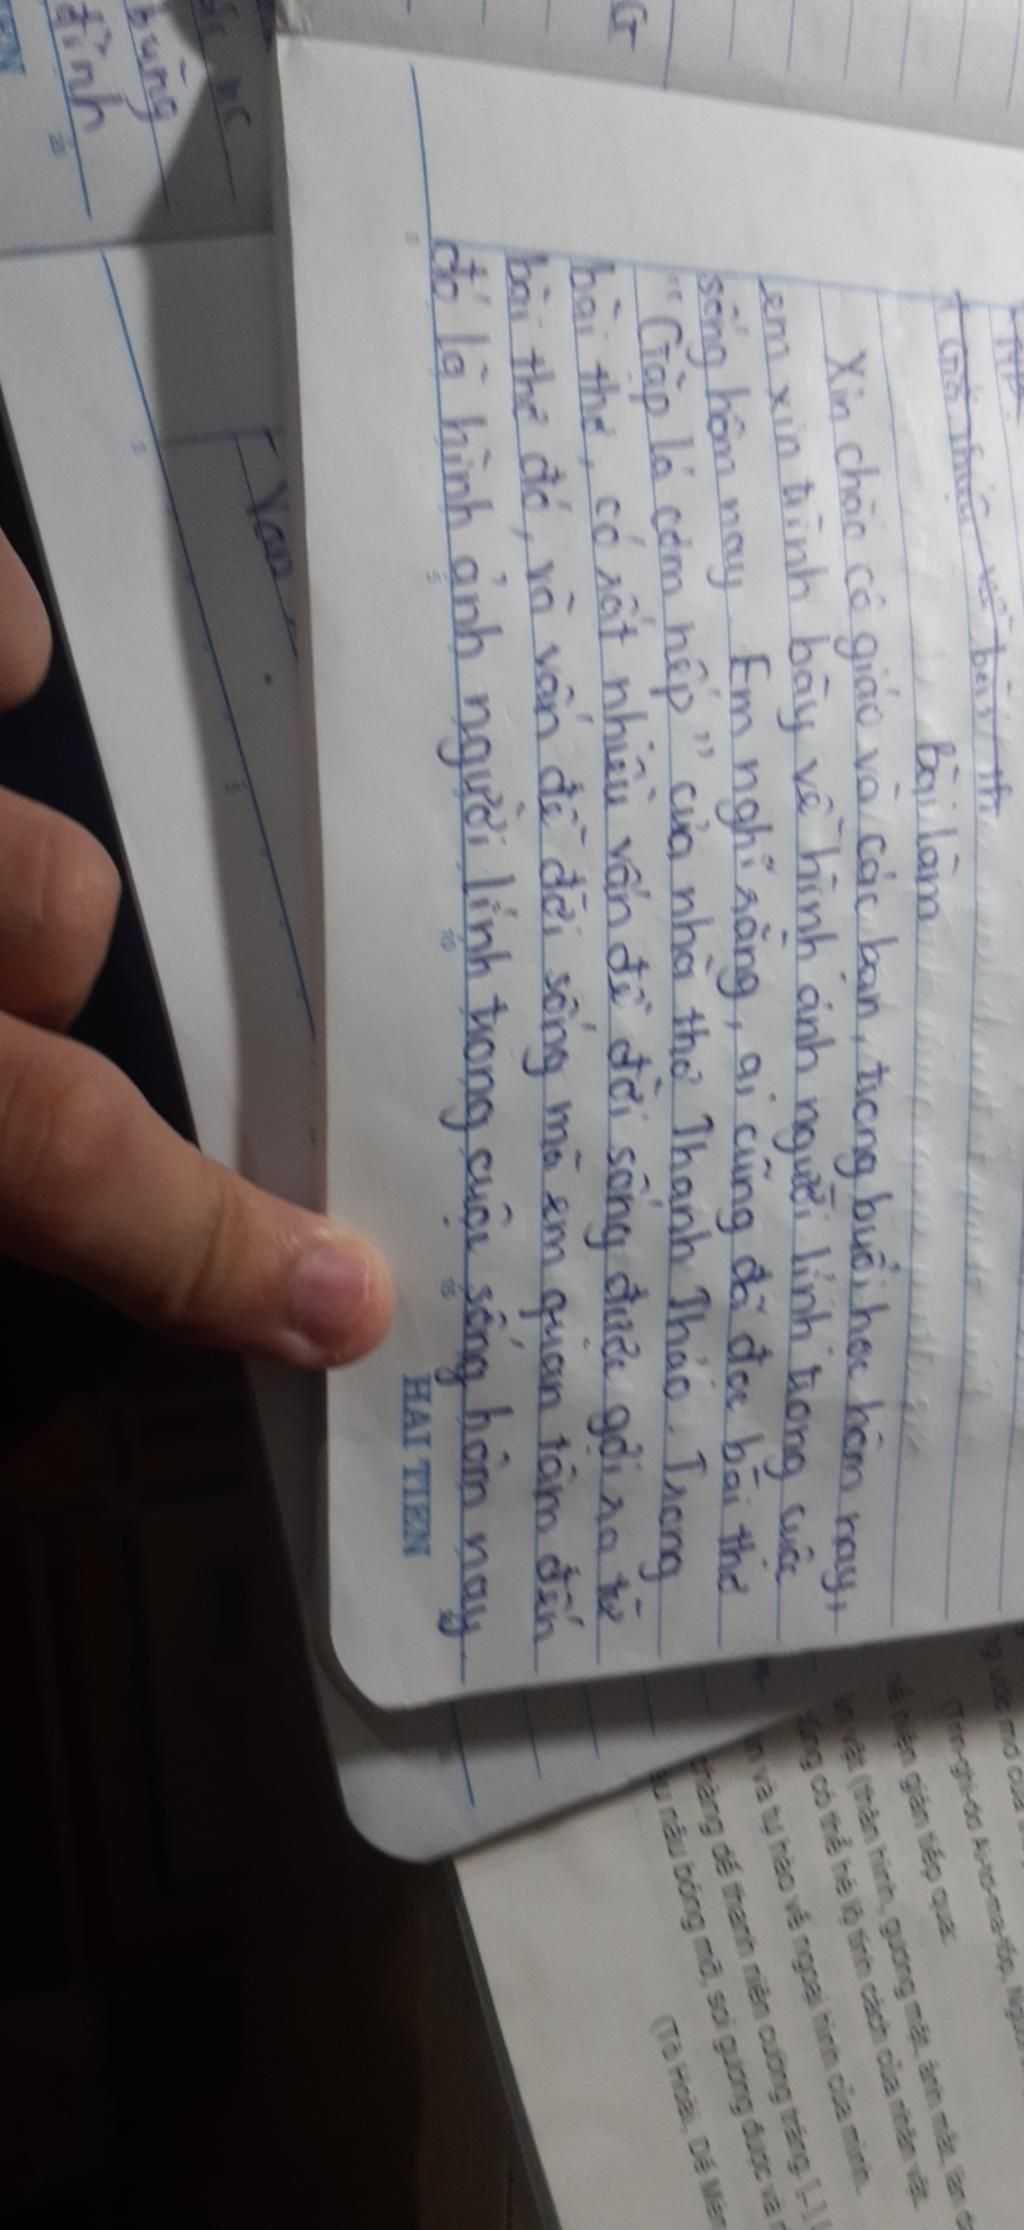 G
bài th
Bài làm
Xin chào cô giáo và các bạn, trong buổi học hôm nay,
em xin trình bày về hình ảnh người lính trong cuộc
sống hôm nay. Em nghĩ rằng, ai cũng đã đọc bài thơ
"Gặp lá cơm nếp" của nhà thơ Thanh Thảo. Trong
bài thơ, có rất nhiều vấn đề đời sống được gợi ra từ
bài thơ đó, và vấn đề đời sống mà em quan tâm đến
đó là hình ảnh người lính trong cuộc sống hôm nay
HAI TIEN
5
10
15
bưng
đình
TIEN
Van
(Trin-ghi-dơ Ai-tơ-ma-tốp,
hiện gián tiếp qua:
vật (thân hình, gương mặt, ánh mắt, làn
cũng có thể hé lộ tính cách của nhân vật.
và tự hào về ngoại hình của mình.
chàng dế thanh niên cường tráng. [...]
nâu bóng mỡ, soi gương được và
(Tô Hoài, Dế Mèn